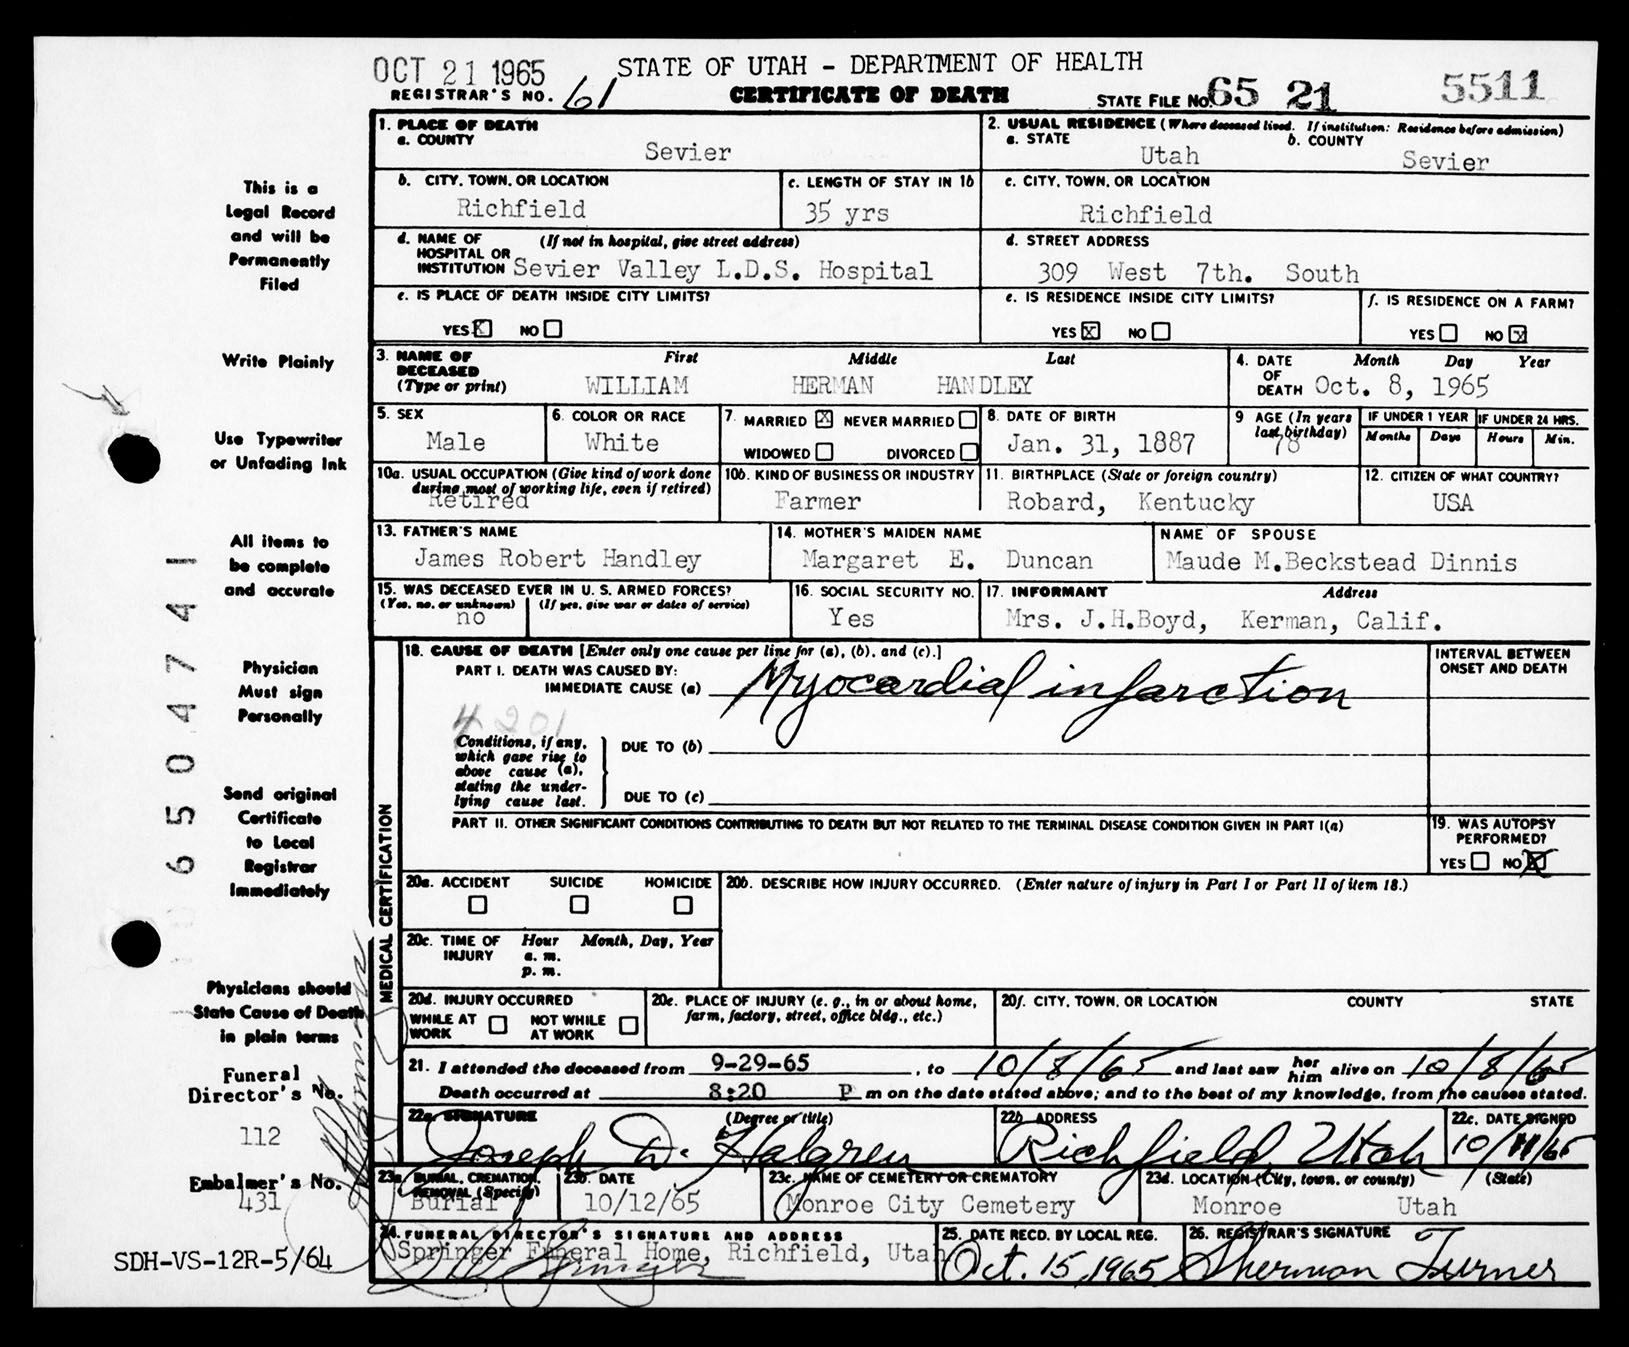 OCT 21 1965
STATE OF UTAH - DEPARTMENT OF HEALTH
REGISTRAR'S NO. 61
CERTIFICATE OF DEATH
STATE FILE NO. 65 21 5511
1. PLACE OF DEATH
a. COUNTY
Sevier
2. USUAL RESIDENCE (Where deceased lived. If institution: Residence before admission)
a. STATE
Utah
b. COUNTY
Sevier
b. CITY, TOWN, OR LOCATION
Richfield
c. LENGTH OF STAY IN 1b
35 yrs
c. CITY, TOWN, OR LOCATION
Richfield
d. NAME OF (If not in hospital, give street address)
HOSPITAL OR
INSTITUTION Sevier Valley L.D.S. Hospital
d. STREET ADDRESS
309 West 7th. South
e. IS PLACE OF DEATH INSIDE CITY LIMITS?
YES X NO
e. IS RESIDENCE INSIDE CITY LIMITS?
YES X NO
f. IS RESIDENCE ON A FARM?
YES NO X
3. NAME OF
DECEASED
(Type or print)
First Middle Last
WILLIAM HERMAN HANDLEY
4. DATE
OF
DEATH
Month Day Year
Oct. 8, 1965
5. SEX
Male
6. COLOR OR RACE
White
7. MARRIED X NEVER MARRIED
WIDOWED DIVORCED
8. DATE OF BIRTH
Jan. 31, 1887
9 AGE (In years
last birthday)
78
IF UNDER 1 YEAR
Months Days
IF UNDER 24 HRS.
Hours Min.
10a. USUAL OCCUPATION (Give kind of work done
during most of working life, even if retired)
Retired
10b. KIND OF BUSINESS OR INDUSTRY
Farmer
11. BIRTHPLACE (State or foreign country)
Robard, Kentucky
12. CITIZEN OF WHAT COUNTRY?
USA
13. FATHER'S NAME
James Robert Handley
14. MOTHER'S MAIDEN NAME
Margaret E. Duncan
NAME OF SPOUSE
Maude M.Beckstead Dinnis
15. WAS DECEASED EVER IN U. S. ARMED FORCES?
(Yes, no, or unknown) (If yes, give war or dates of service)
no
16. SOCIAL SECURITY NO.
Yes
17. INFORMANT Address
Mrs. J.H.Boyd, Kerman, Calif.
MEDICAL CERTIFICATION
18. CAUSE OF DEATH [Enter only one cause per line for (a), (b), and (c).]
PART I. DEATH WAS CAUSED BY:
IMMEDIATE CAUSE (a) Myocardial infarction
INTERVAL BETWEEN
ONSET AND DEATH
4201
Conditions, if any,
which gave rise to
above cause (a),
stating the under-
lying cause last.
DUE TO (b)
DUE TO (c)
PART II. OTHER SIGNIFICANT CONDITIONS CONTRIBUTING TO DEATH BUT NOT RELATED TO THE TERMINAL DISEASE CONDITION GIVEN IN PART I(a)
19. WAS AUTOPSY
PERFORMED?
YES NO X
20a. ACCIDENT SUICIDE HOMICIDE
20b. DESCRIBE HOW INJURY OCCURRED. (Enter nature of injury in Part I or Part II of item 18.)
20c. TIME OF
INJURY
Hour Month, Day, Year
a. m.
p. m.
20d. INJURY OCCURRED
WHILE AT
WORK
NOT WHILE
AT WORK
20e. PLACE OF INJURY (e. g., in or about home,
farm, factory, street, office bldg., etc.)
20f. CITY, TOWN, OR LOCATION COUNTY STATE
21. I attended the deceased from 9-29-65, to 10/8/65 and last saw her him alive on 10/8/65
Death occurred at 8:20 P m on the date stated above; and to the best of my knowledge, from the causes stated.
22a SIGNATURE (Degree or title)
Joseph D. Halgren
22b ADDRESS
Richfield, Utah
22c. DATE SIGNED
10/11/65
23a BURIAL, CREMATION,
REMOVAL (Specify)
Burial
23b. DATE
10/12/65
23c. NAME OF CEMETERY OR CREMATORY
Monroe City Cemetery
23d. LOCATION (City, town, or county) (State)
Monroe Utah
24. FUNERAL DIRECTOR'S SIGNATURE AND ADDRESS
Springer Funeral Home, Richfield, Utah
25. DATE RECD. BY LOCAL REG.
Oct. 15, 1965
26. REGISTRAR'S SIGNATURE
Sherman Turner
This is a
Legal Record
and will be
Permanently
Filed
Write Plainly
Use Typewriter
or Unfading Ink
All items to
be complete
and accurate
Physician
Must sign
Personally
Send original
Certificate
to Local
Registrar
Immediately
Physicians should
State Cause of Death
in plain terms
Funeral
Director's No.
112
Embalmer's No.
431
SDH-VS-12R-5/64
65047 41